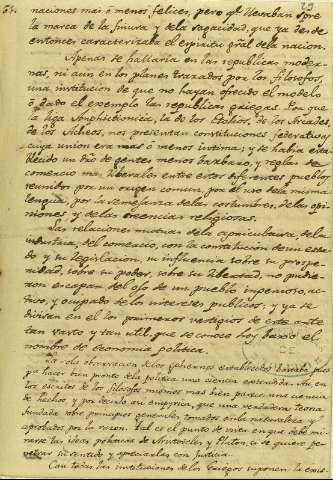 naciones mai ó menos felices, pero qe. llevaban spre
la marca de la finura y dela sagacidad, que ya desde
entonces caracterizaba el espiritu gral dela nacion.
Apenas se hallaria en las republicas moder-
nas, ni aun en los planes trazados por los filosofos,
una institucion de que no hayan ofrecido el modelo
ó dado el exemplo las republicas griegas. Por que
la liga Amphictionica, la de los Etolios, de los Arcades,
de los Acheos, nos presentan constituciones federativas,
cuya union era mas ó menos intima; y se habia esta
blecido un dro de gentes menos barbaro, y reglas de
comercio mas liberales entre estos diferentes pueblos
reunidos por un origen comun, por el uso dela misma
lengua, por la semejanza delas costumbres, delas opi-
niones, y delas creencias religiosas.
Las relaciones mutuas dela agricultura, dela
industria, del comercio, con la constitucion de un esta-
do y su legislacion, su influencia sobre su prospe-
ridad, sobre su poder, sobre su libertad, no pudie-
ron escapar del ojo de un pueblo ingenioso, ac-
tivo, y ocupado delos intereses publicos; y ya se
divisan en él los primeros vestigios de este arte
tan vasto y tan util, que se conoce hoy baxo el
nombre de economia politica.
La sola observacion delos gobiernos establecidos bastaba pues
pa. hacer bien pronto dela politica una ciencia extendida. Asi en
los escritos de los filosofos mismos mas bien parece una ciencia
de hechos, y por decirlo asi empyrica, que una verdadera teoria
fundada sobre principios generales, tomados en la naturaleza y
aprobados por la razon. Tal es el punto de vista en que debe mi-
rarse las ideas politicas de Aristóteles y Platon, si se quiere pe-
netrar su sentido y apreciarlas con justicia.
Casi todas las instituciones delos Griegos suponen la exis-